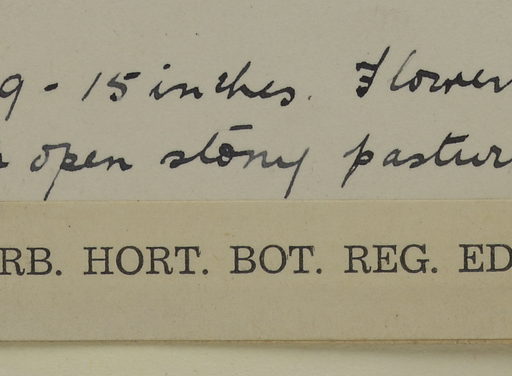 9 - 15 inches. Flower
open stony pastur
RB. HORT. BOT. REG. ED